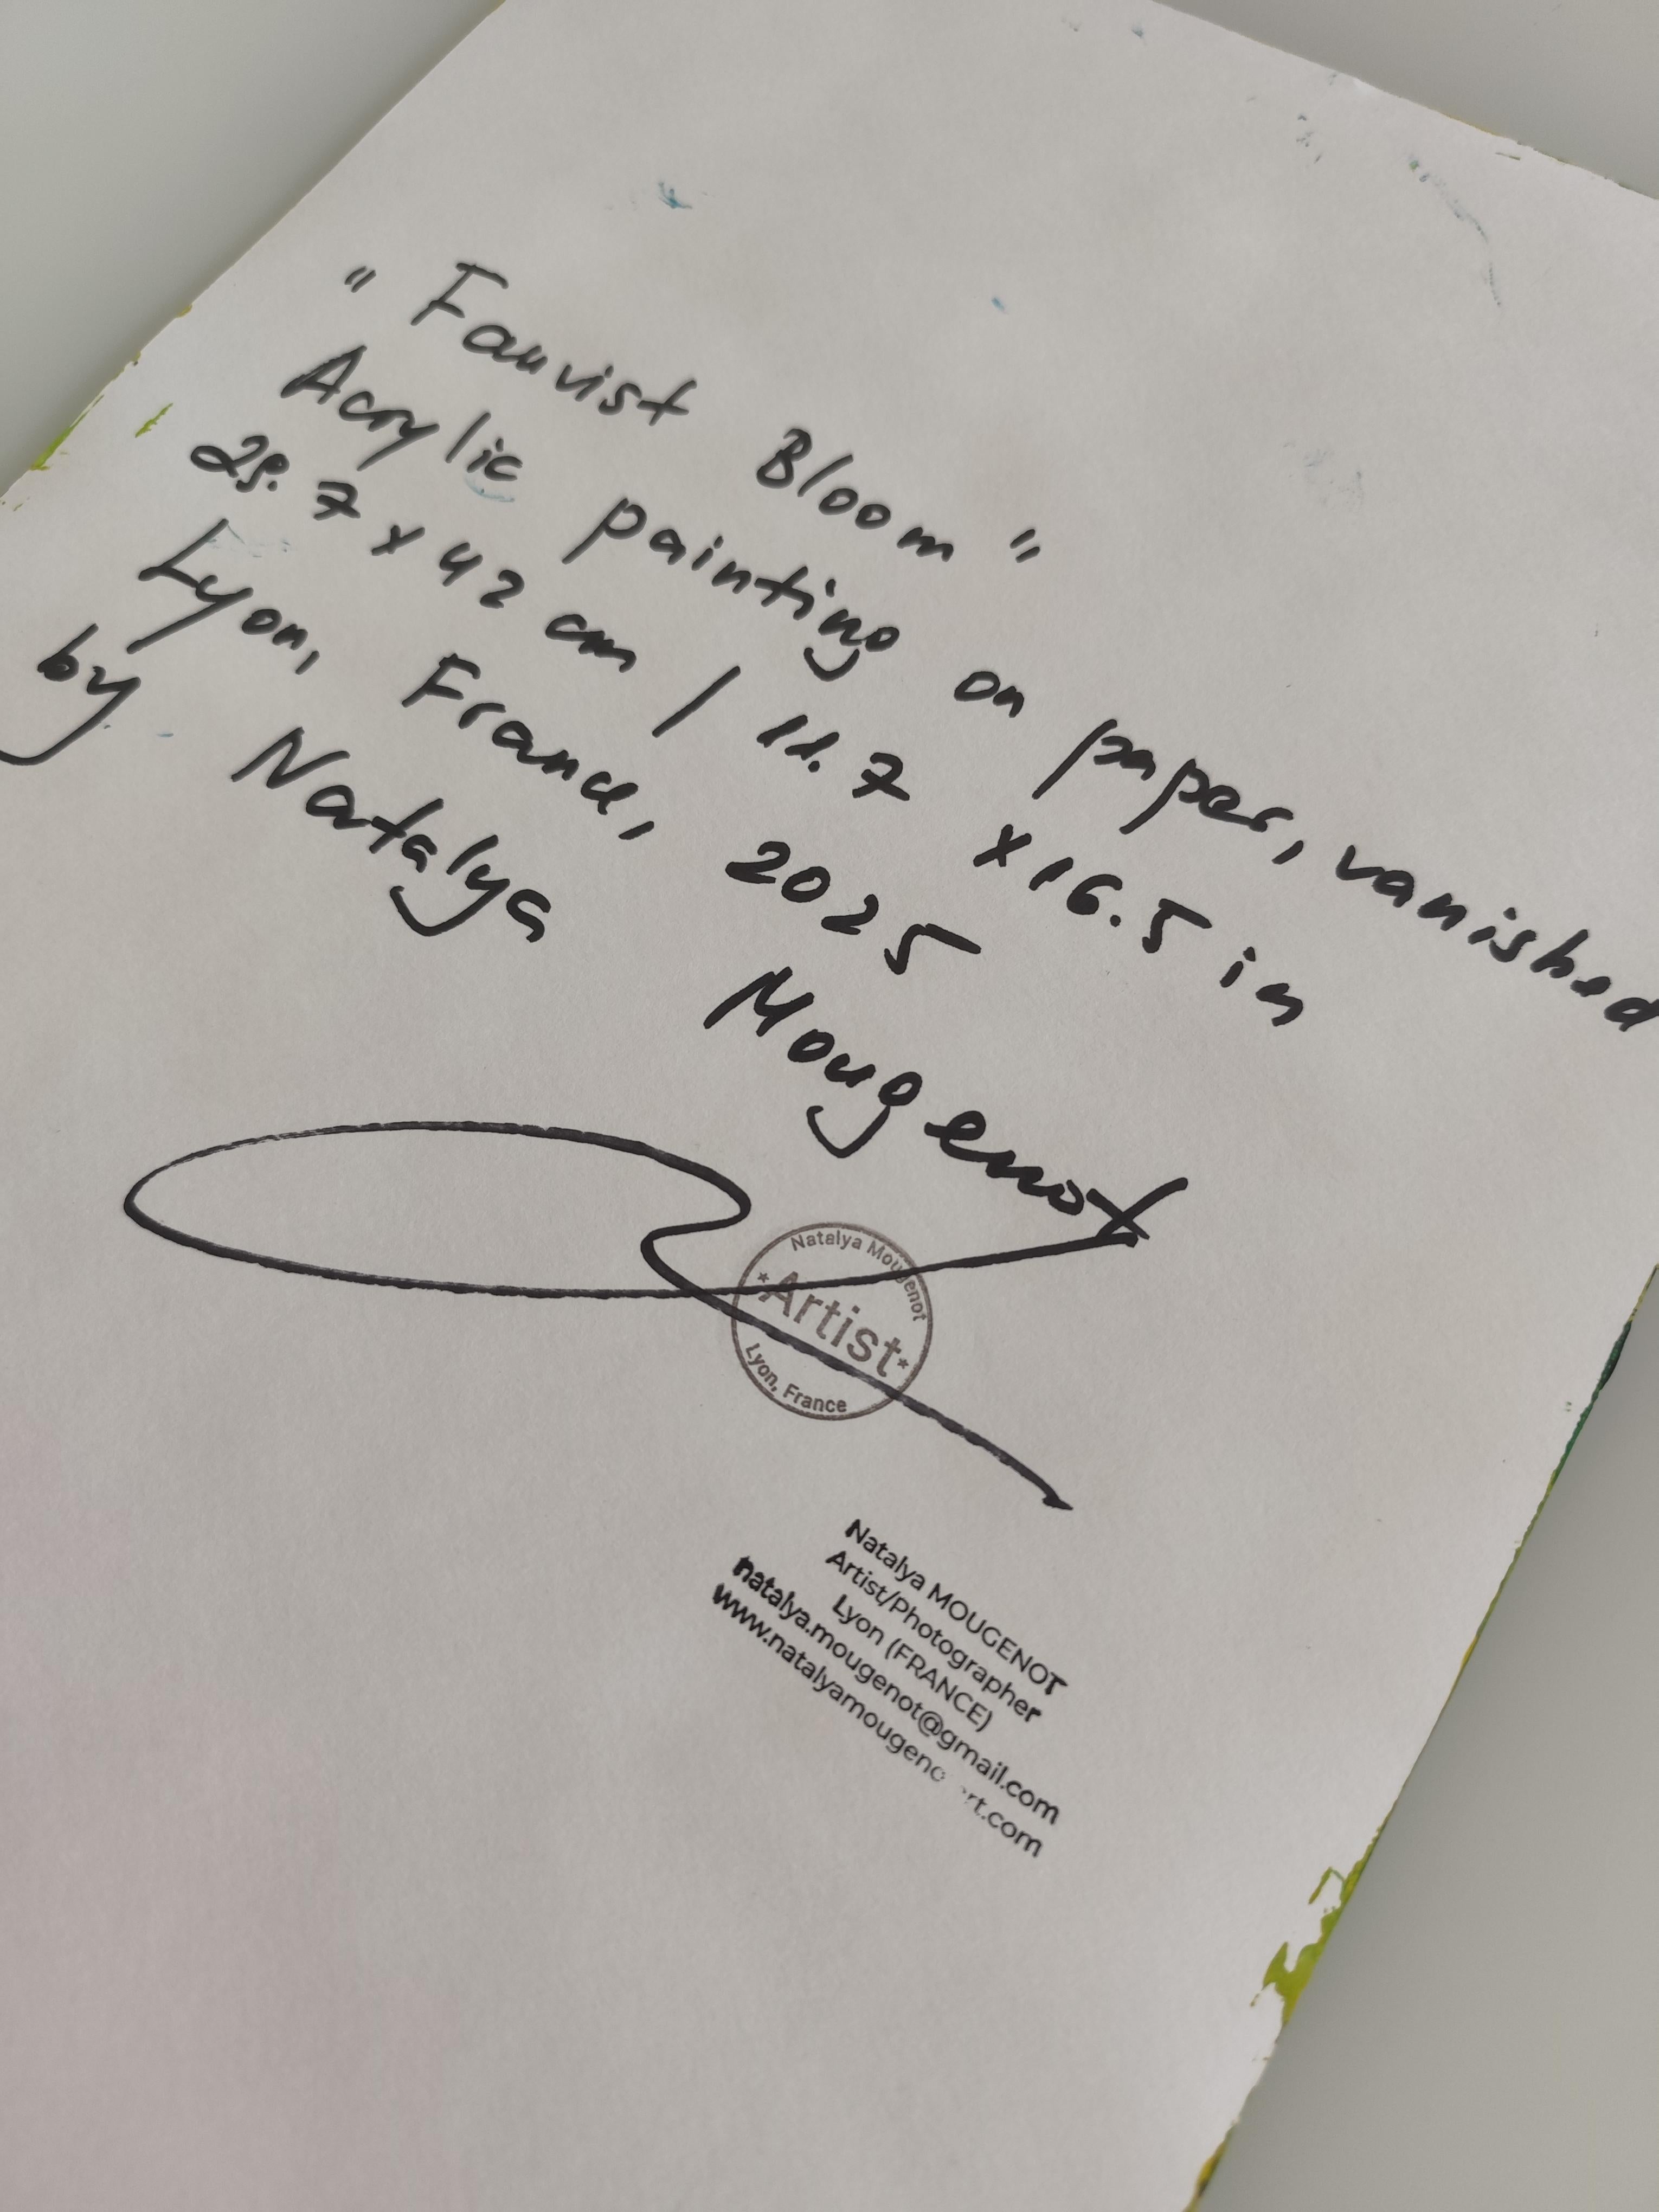 "Fauvist Bloom"
Acrylic painting on paper, vanished
29.7 x 42 cm / 11.7 x 16.5 in
Lyon, France, 2025
by Natalya Mougenot
Natalya Mougenot
*Artist*
Lyon, France
Natalya MOUGENOT
Artist/Photographer
Lyon (FRANCE)
natalya.mougenot@gmail.com
www.natalyamougeno rt.com